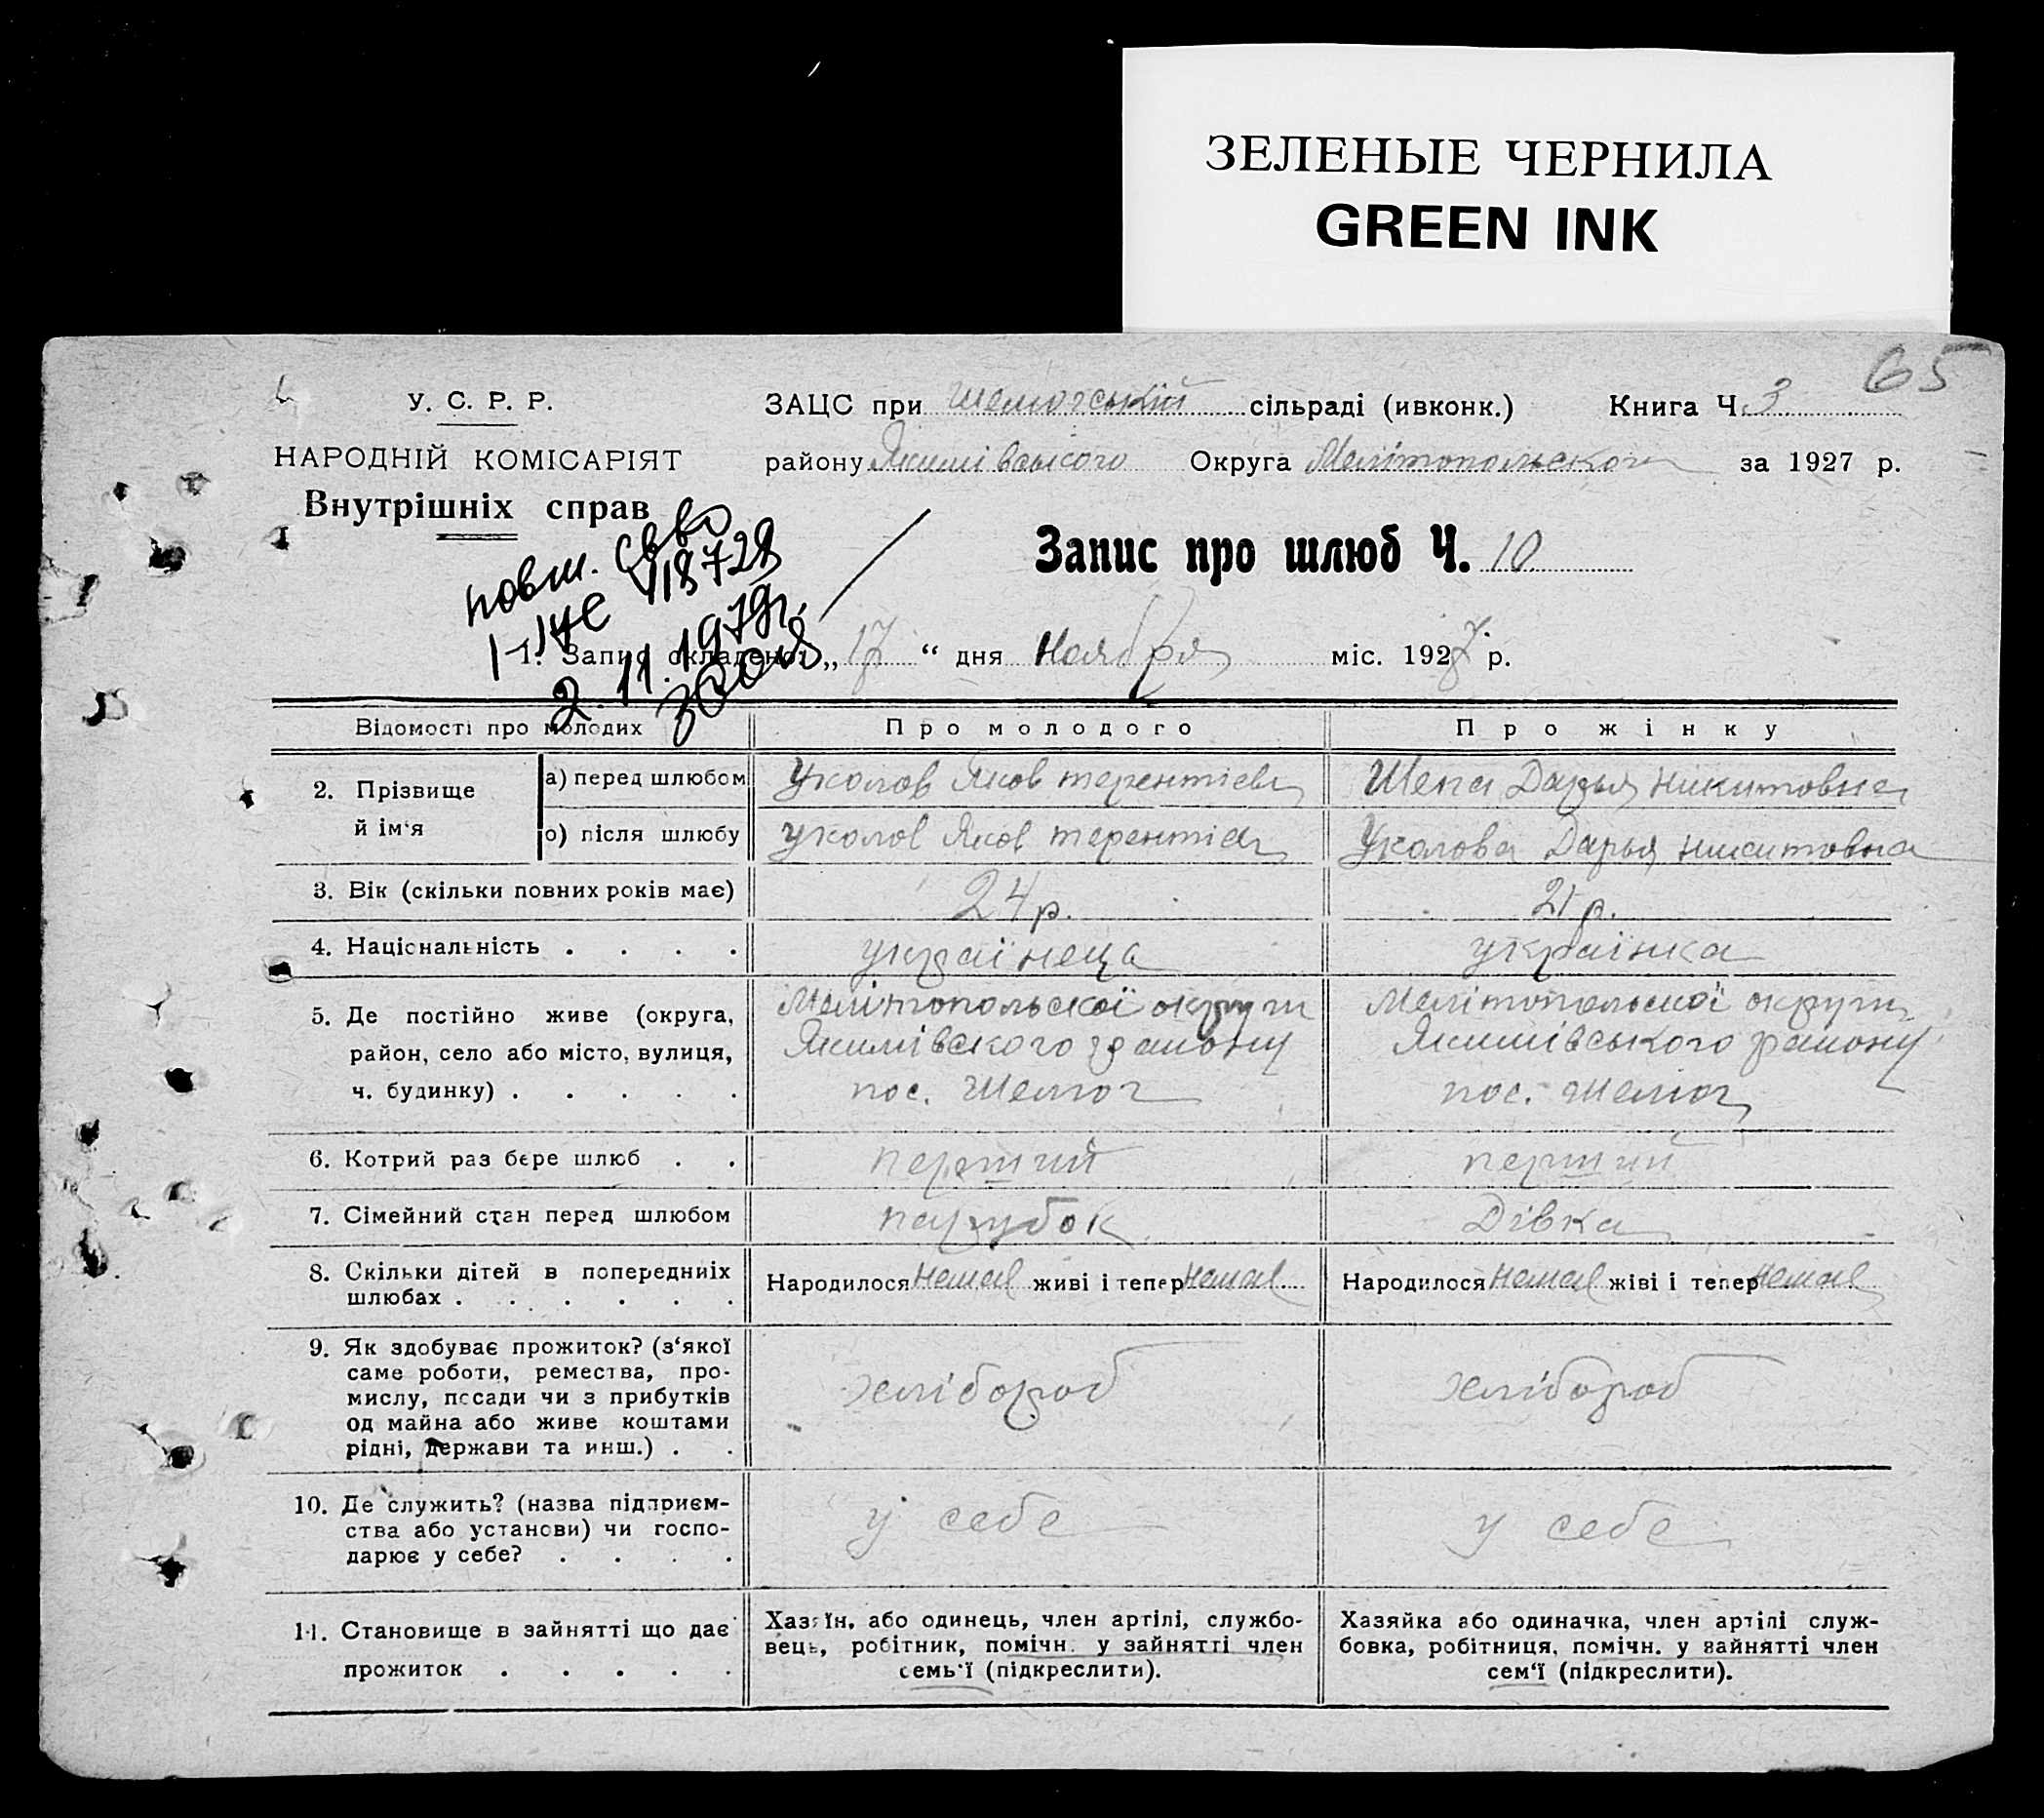 ЗЕЛЕНЫЕ ЧЕРНИЛА
GREEN INK
65
У. С. Р. Р.
НАРОДНІЙ КОМІСАРІЯТ
Внутрішніх справ
ЗАЦС при Шелюгський сільраді (ивконк.) Книга Ч. 3
району Якимівського Округа Мелітопольского за 1927 р.
Запис про шлюб Ч. 10
повт. св во
I-ЖС 118728
2. 11. 1979г.
1. Запис складено: „ 17 “ дня Ноября міс. 1927 р.
Відомості про молодих Про молодого Про жінку
2. Прізвище й ім‘я
а) перед шлюбом Уколов Яков терентієв Шепа Дарья Никитовна
о) після шлюбу Уколов Яков терентієв Уколова Дарья никитовна
3. Вік (скільки повних років має) 24 р. 21 р.
4. Національність . . . . українеца українка
5. Де постійно живе (округа, Мелітопольскої округи Мелітопольскої округи
район, село або місто, вулиця, Якимівского району Якимівського району
ч. будинку) . . . . . пос. Шелюг пос. Шелюг
6. Котрий раз бере шлюб . . перший перший
7. Сімейний стан перед шлюбом парубок Дівка
8. Скільки дітей в попередниіх Народилося Немає живі і тепер Немає Народилося Немає жіві і тепер Немає
шлюбах . . . . . .
9. Як здобуває прожиток? (з‘якої
саме роботи, ремества, про-
мислу, посади чи з прибутків хлібороб хлібороб
од майна або живе коштами
рідні, держави та инш.) . .
10. Де служить? (назва підприєм-
ства або установи) чи госпо- у себе у себе
дарює у себе? . . . .
11. Становище в зайнятті що дає
прожиток . . . . .
Хазяїн, або одинець, член артілі, службо-
вець, робітник, помічн. у зайнятті член
семь‘ї (підкреслити).
Хазяйка або одиначка, член артілі служ-
бовка, робітниця, помічн. у зайнятті член
сем‘ї (підкреслити).